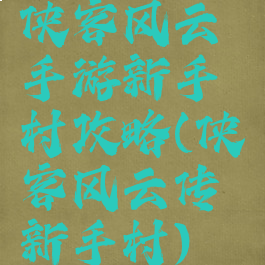 侠客风云
手游新手
村攻略(侠
客风云传
新手村)